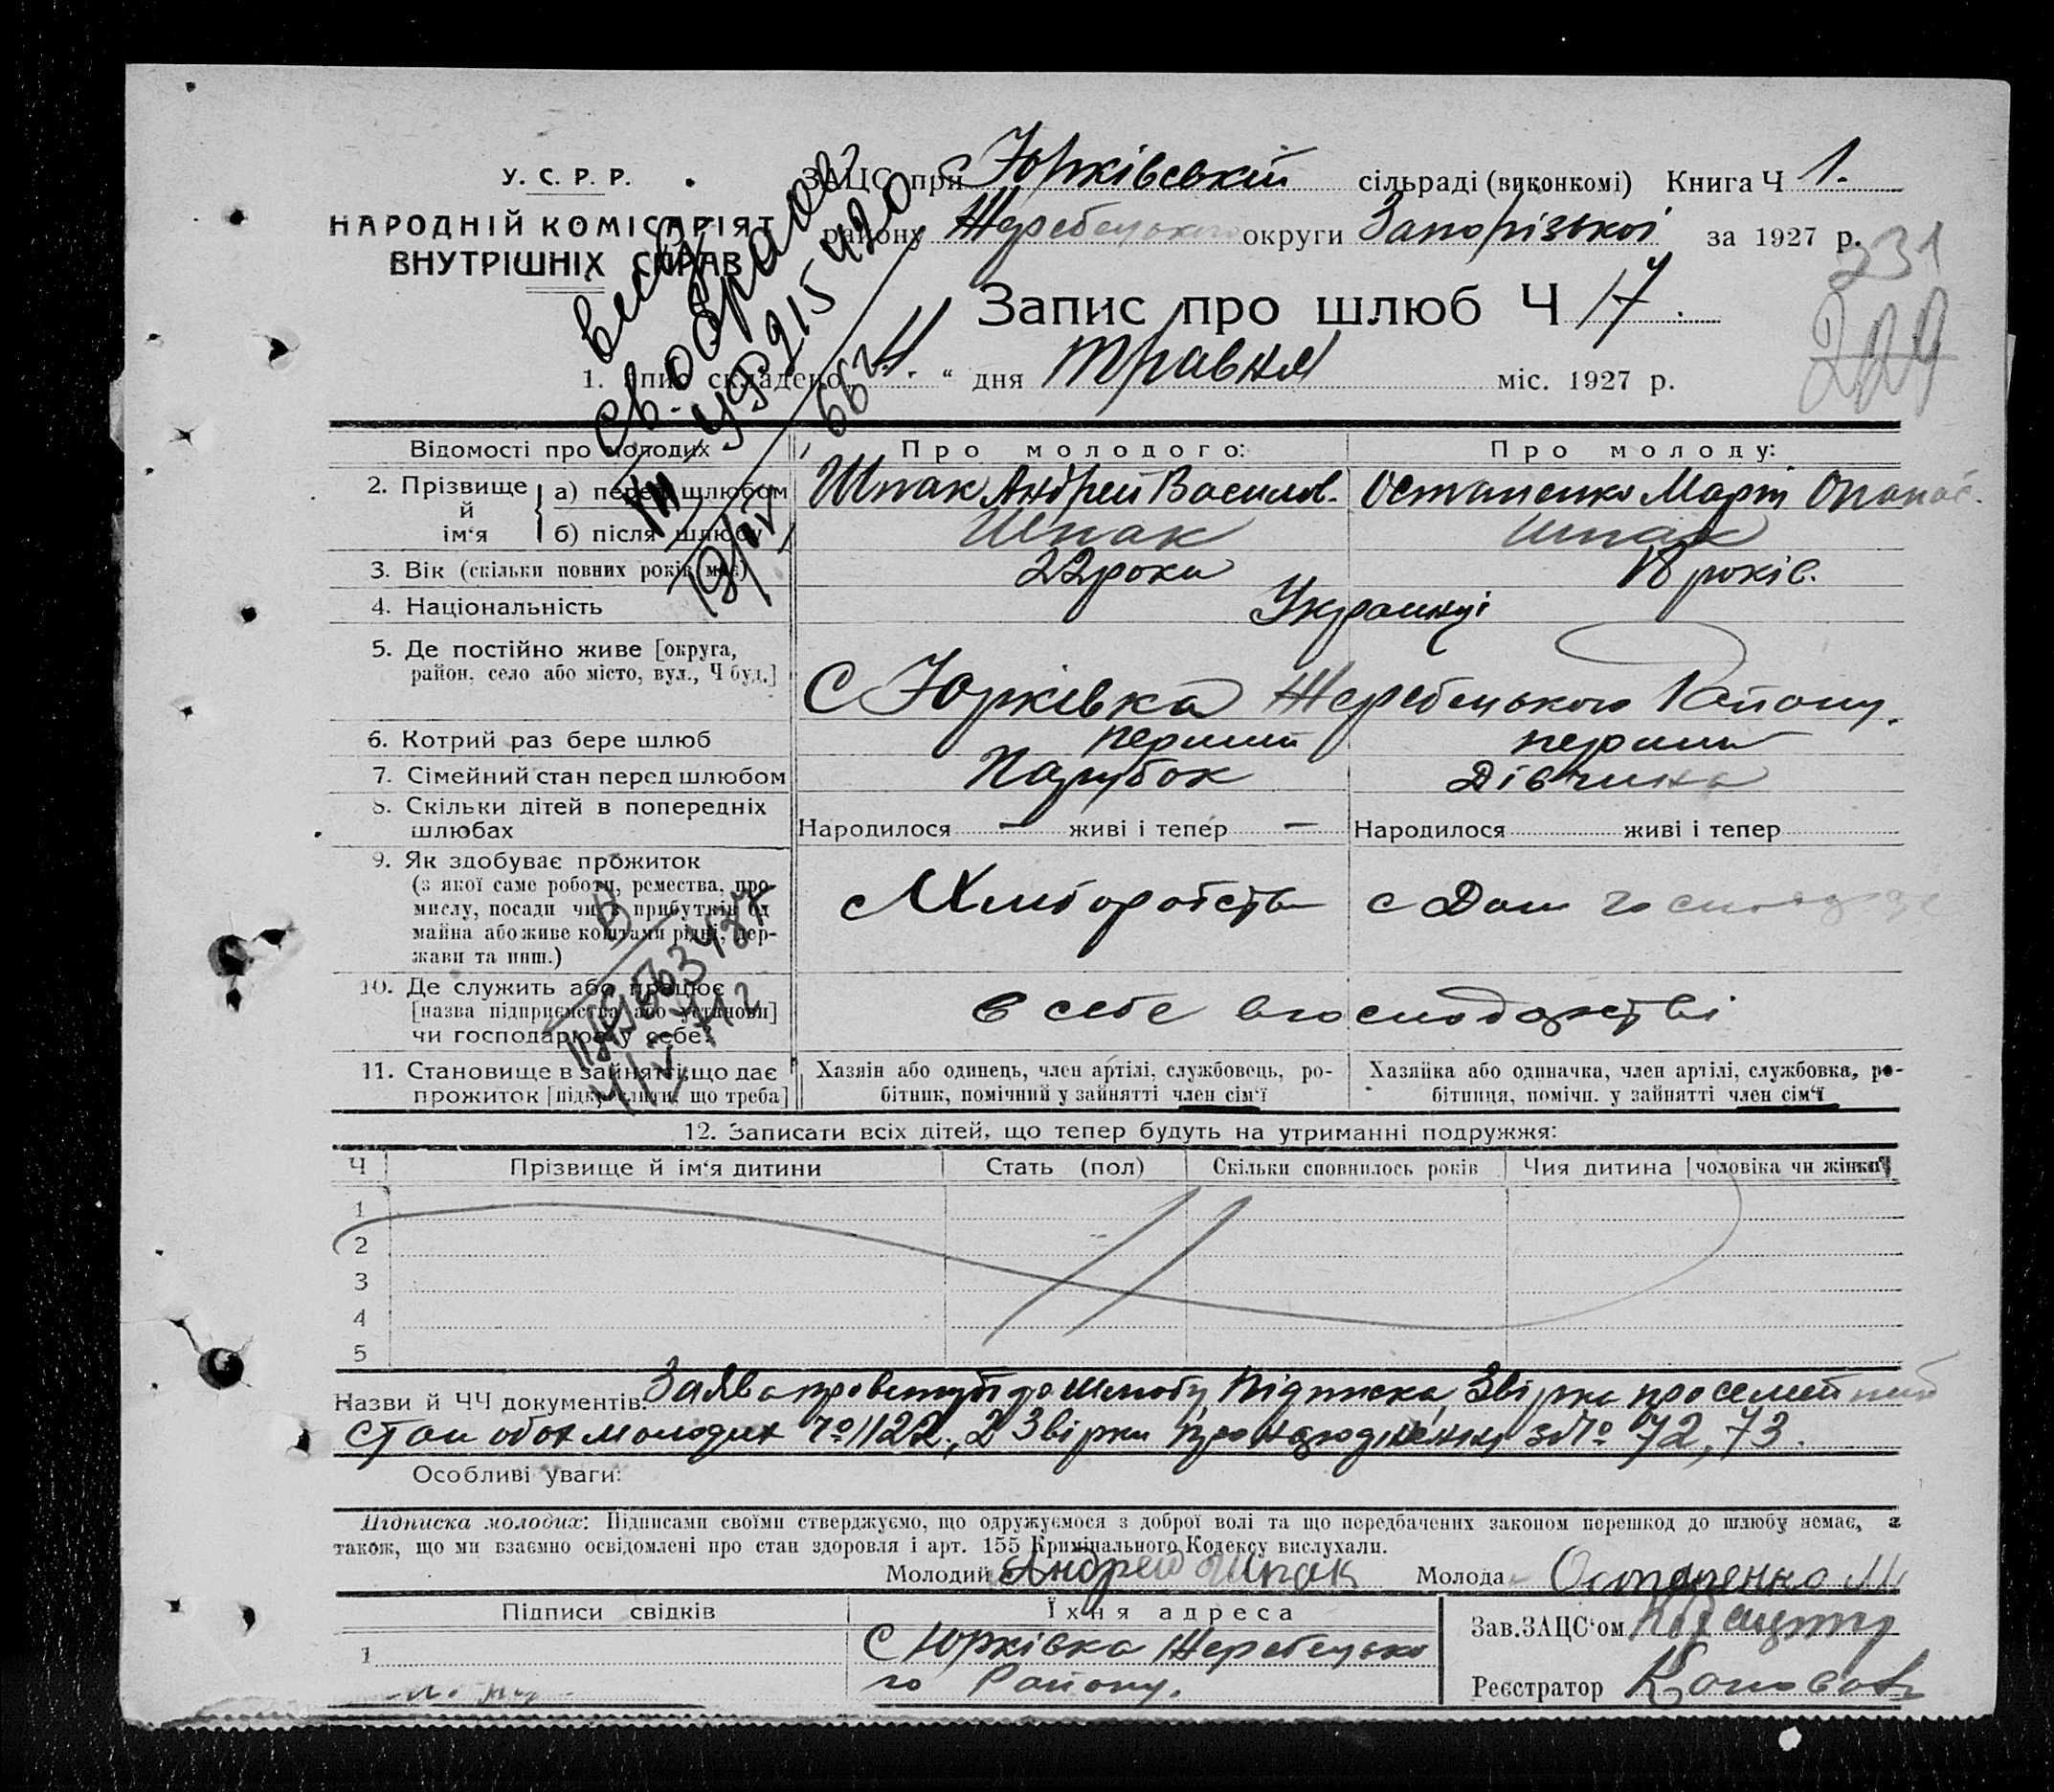 У. С. Р. Р.
НАРОДНІЙ КОМІСАРІЯТ
ВНУТРІШНІХ СПРАВ
ЗАЦС при Юрківській сільраді (виконкомі) Книга Ч 1.
району Жеребецького округи Запорізької за 1927 р.
231
229
Запис про шлюб Ч 17.
1. складено „4“ дня травня міс. 1927 р.
Відомості про молодих
Про молодого:
Про молоду:
2. Прізвище й ім‘я
а) перед шлюбом
Шпак Андрей Василов.
Остапенко Марія Опанас.
б) після шлюбу
Шпак
Шпак
3. Вік (скільки повних років має)
22 роки
18 років.
4. Національність
Українці
5. Де постійно живе [округа, район, село або місто, вул., Ч буд.]
С Юрківка Жеребецького Району.
6. Котрий раз бере шлюб
перший
перший
7. Сімейний стан перед шлюбом
Парубок
Дівчина
8. Скільки дітей в попередніх шлюбах
Народилося — живі і тепер —
Народилося живі і тепер
9. Як здобуває прожиток
(з якої саме роботи, ремества, про-
мислу, посади чи з прибутків од
майна або живе коштами рідні, дер-
жави та инш.)
с Дом
10. Де служить або працює
[назва підприємства або установи]
чи господарює у себе?
в себе вгосподарстві
11. Становище в зайнятті, що дає
прожиток [підкреслити, що треба]
Хазяїн або одинець, член артілі, службовець, ро-
бітник, помічний у зайнятті член сім‘ї
Хазяйка або одиначка, член артілі, службовка, ро-
бітниця, помічн. у зайнятті член сім‘ї
12. Записати всіх дітей, що тепер будуть на утриманні подружжя:
Ч Прізвище й ім‘я дитини Стать (пол) Скільки сповнилось років Чия дитина [чоловіка чи жінки]
1
2
3
4
5
Назви й ЧЧ документів: Заява про вступ до шлюбу, Підписка, Звірка про семейний
стан обох молодих № 1122, 2 Звірки про народження з № 72, 73.
Особливі уваги:
Підписка молодих: Підписами своїми стверджуємо, що одружуємося з доброї волі та що передбачених законом перешкод до шлюбу немає, а
також, що ми взаємно освідомлені про стан здоровля і арт. 155 Кримінального Кодексу вислухали.
Молодий Андрей Шпак Молода Остапенко М
Підписи свідків
Їхня адреса
Зав. ЗАЦС‘ом
1
С Юрківка Жеребецько
го Району.
Реєстратор